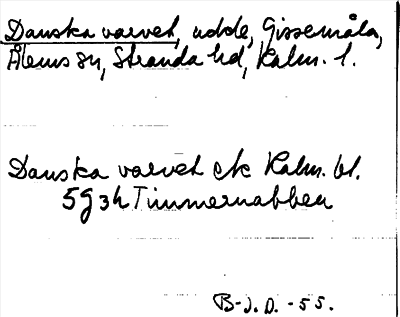 Danska varvet, udde, Gissemåla,
Ålems sn, Stranda hd, Kalm. l.
Danska varvet ek Kalm. bl.
5G3h Timmernabben
B-J.D. -55.